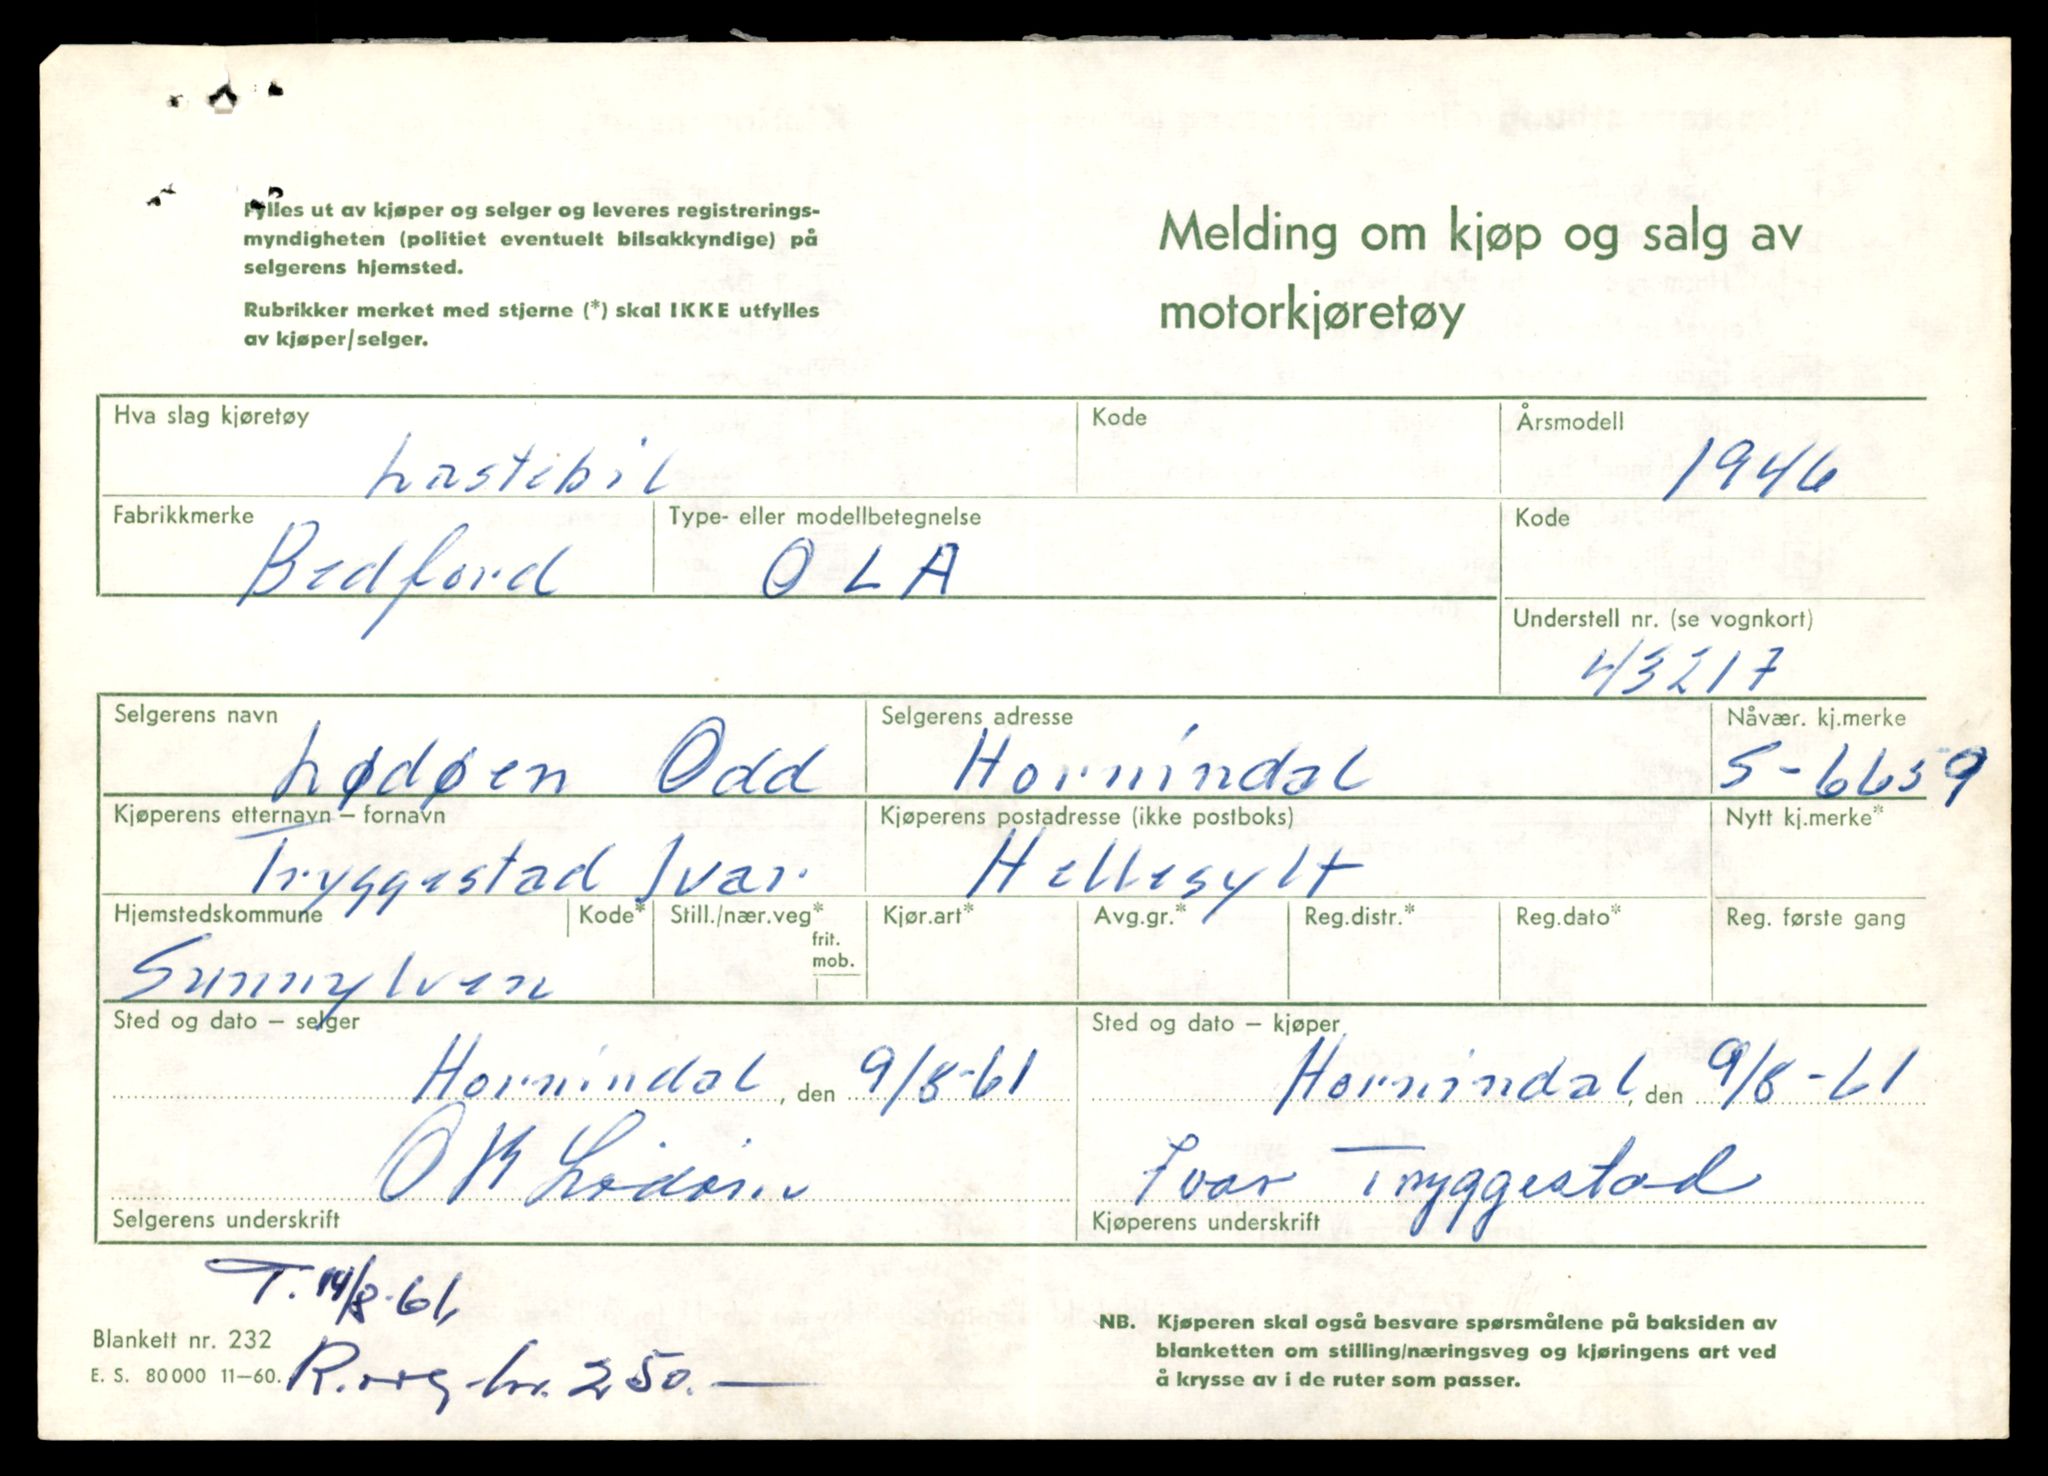 Fylles ut av kjøper og selger og leveres registrerings-
myndigheten (politiet eventuelt bilsakkyndige) på
selgerens hjemsted.
Rubrikker merket med stjerne (*) skal IKKE utfylles
av kjøper/selger.
Melding om kjøp og salg av
motorkjøretøy
Hva slag kjøretøy
Lastebil
Kode
Årsmodell
1946
Fabrikkmerke
Bedford
Type- eller modellbetegnelse
OLA
Kode
Understell nr. (se vognkort)
43217
Selgerens navn
Lødøen Odd
Selgerens adresse
Hornindal
Nåvær. kj.merke
S-6659
Kjøperens etternavn – fornavn
Tryggestad Ivar.
Kjøperens postadresse (ikke postboks)
Hellesylt
Nytt kj.merke*
Hjemstedskommune
Sunnylven
Kode*
Still./nær.veg*
frit.
mob.
Kjør.art*
Avg.gr.*
Reg.distr.*
Reg.dato*
Reg. første gang
Sted og dato – selger
Hornindal, den 9/8-61
Sted og dato – kjøper
Hornindal, den 9/8-61
O Lødøen
Selgerens underskrift
Ivar Tryggestad
Kjøperens underskrift
T. 14/8-61,
Blankett nr. 232
E. S. 80 000 11–60.
kr. 250.—
NB. Kjøperen skal også besvare spørsmålene på baksiden av
blanketten om stilling/næringsveg og kjøringens art ved
å krysse av i de ruter som passer.